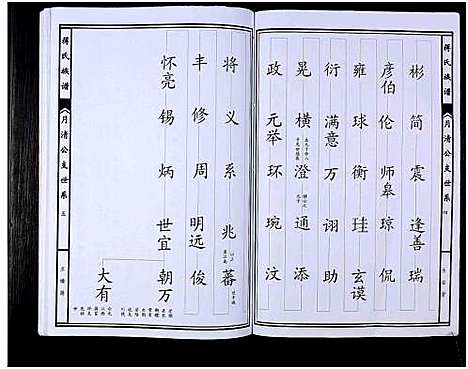 蒋氏族谱
月清公支世系
四
彬 简 震 逢善 瑞
彦伯 伦 师皋 琼 侃
雍 球 衡 珪 玄谟
衍 满意 万 诩 助
晃 横 澄 通 添
政 元举 环 琬 汶
将 义 系 兆 蕃
丰 修 周 明远 俊
怀亮 锡 炳 世宜 朝万
大有
蒋氏族谱
月清公支世系
五